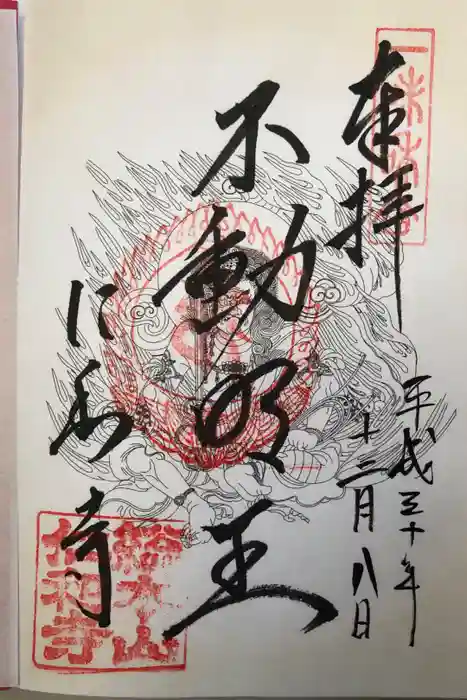 奉拝
不動明王
仁和寺
平成三十年
十二月八日